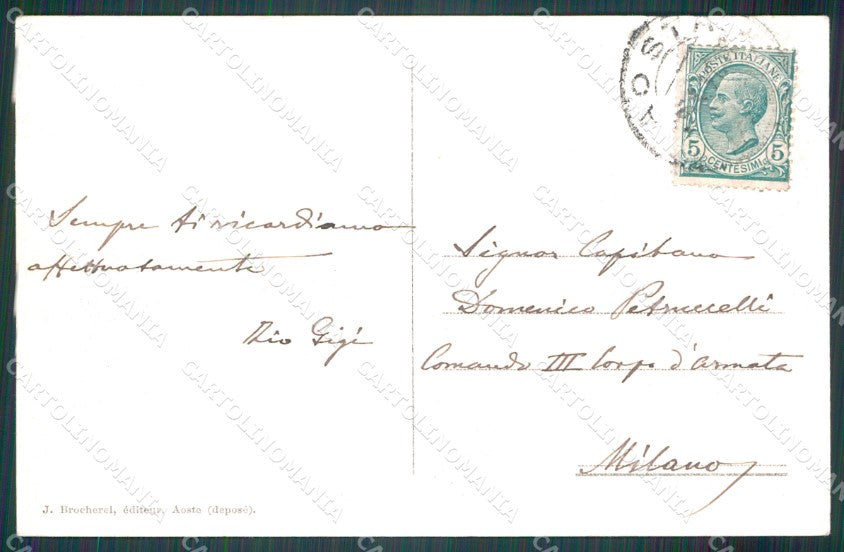 Sempre ti ricordiamo
affettuosamente
Zio Gigi
POSTE ITALIANE
5 CENTESIMI 5
Signor Capitano
Domenico Petruccelli
Comando III Corpo d'Armata
Milano
J. Brocherel, éditeur, Aoste (deposé).
CARTOLINOMANIA